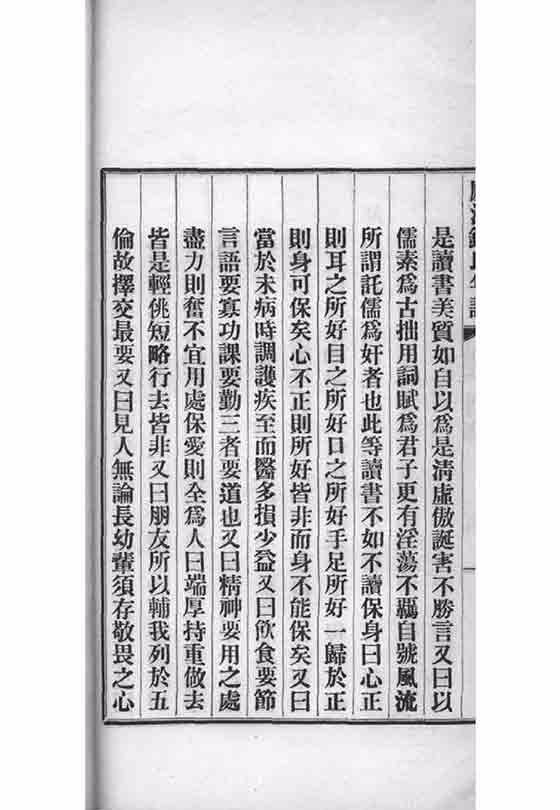 是讀書美質如自以爲是淸虛傲誕害不勝言又曰以
儒素爲古拙用詞賦爲君子更有淫蕩不羈自號風流
所謂託儒爲奸者也此等讀書不如不讀保身曰心正
則耳之所好目之所好口之所好手足所好一歸於正
則身可保矣心不正則所好皆非而身不能保矣又曰
當於未病時調護疾至而醫多損少益又曰飮食要節
言語要寡功課要勤三者要道也又曰精神要用之處
盡力則奮不宜用處保愛則全爲人曰端厚持重做去
皆是輕佻短略行去皆非又曰朋友所以輔我列於五
倫故擇交最要又曰見人無論長幼輩須存敬畏之心